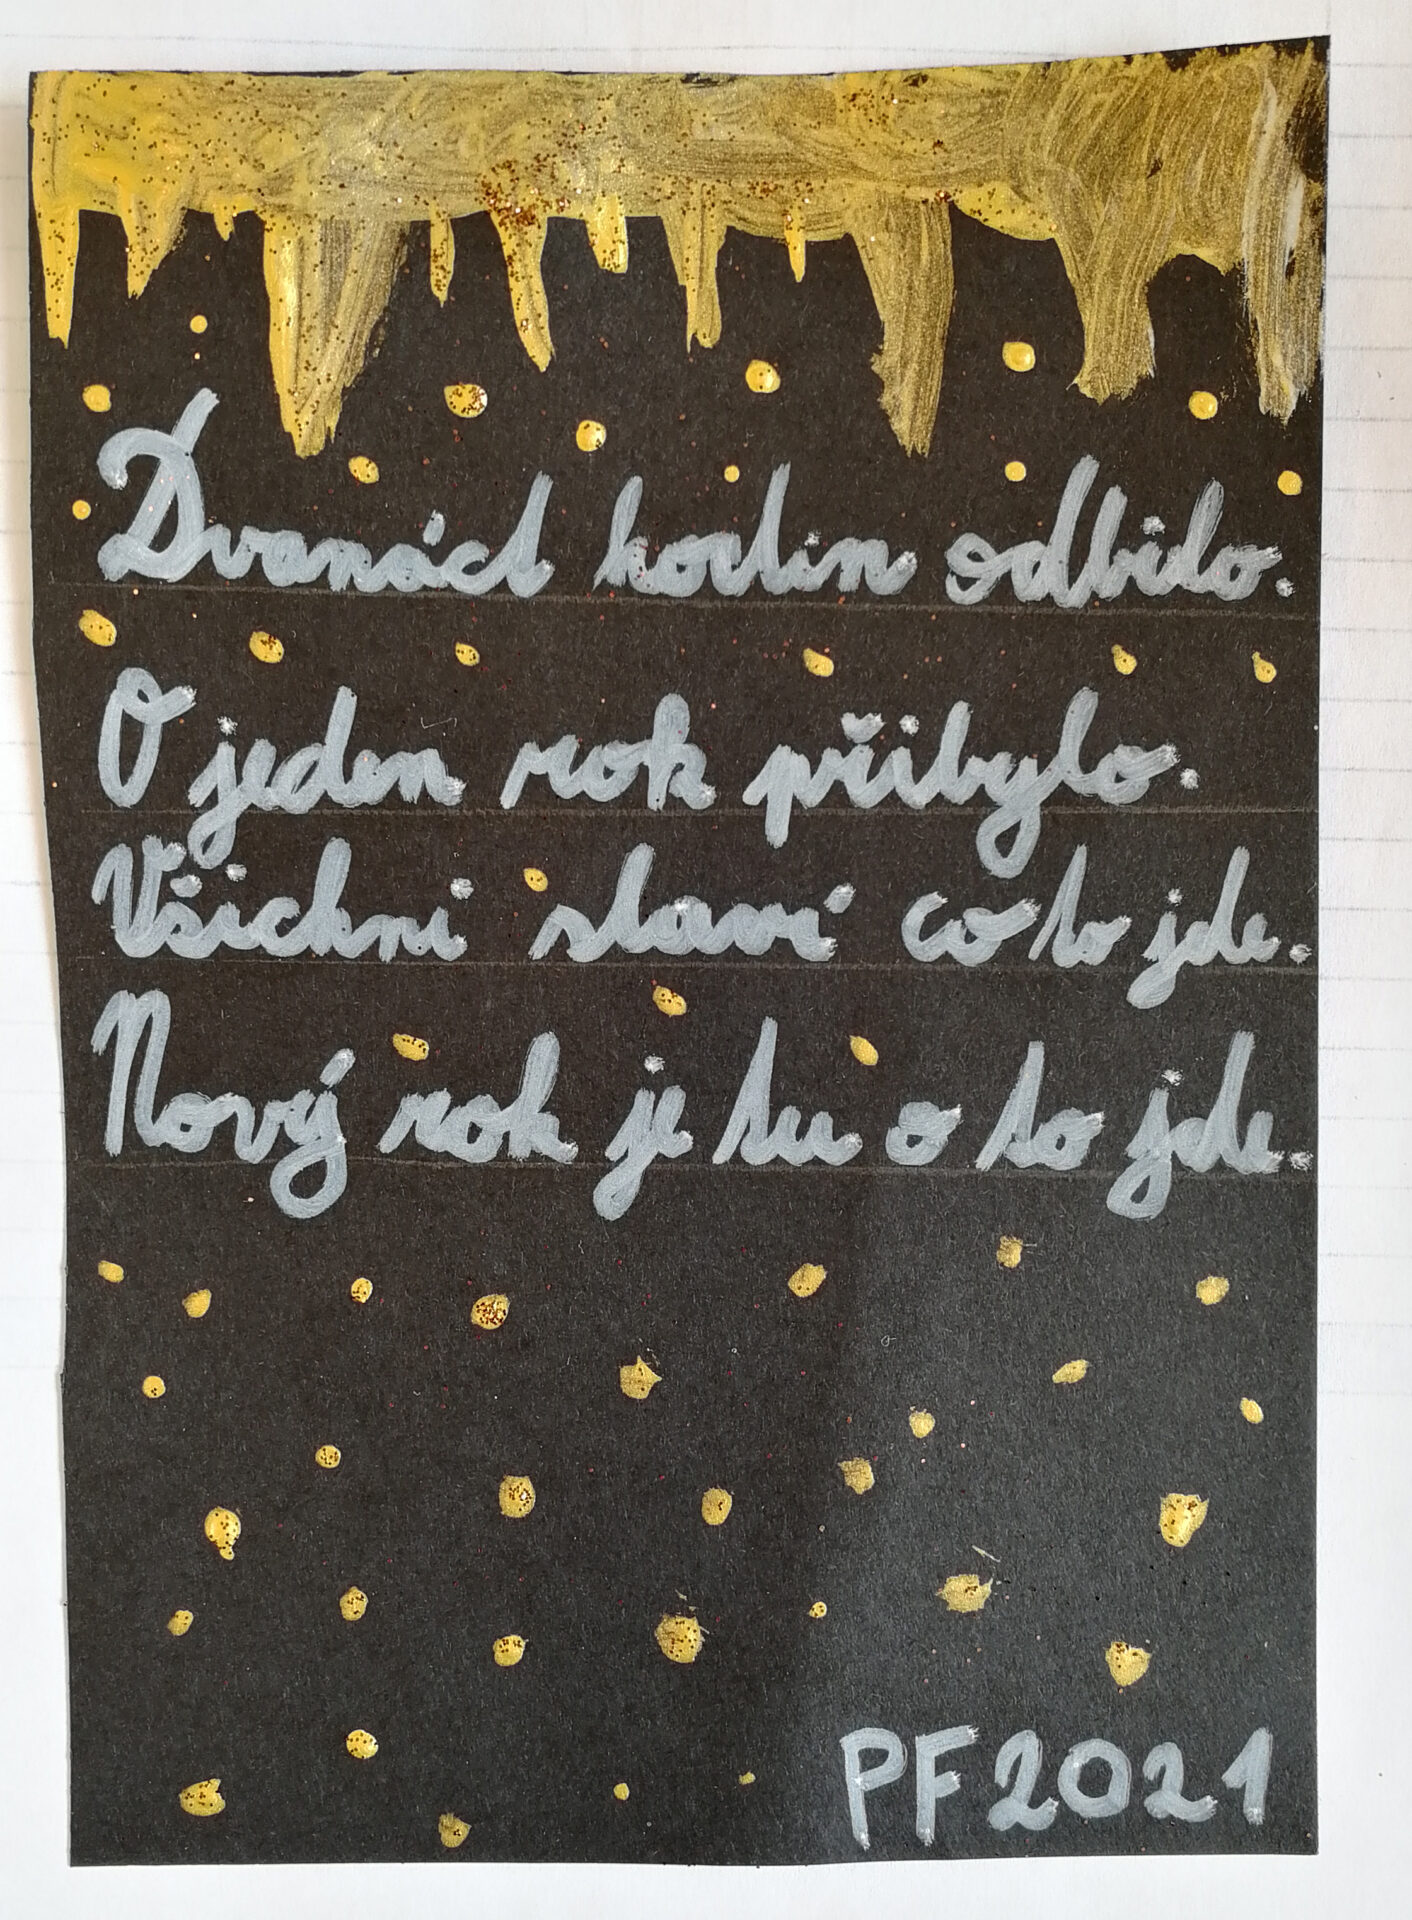 Dvanáct hodin odbilo.
O jeden rok přibylo.
Všichni slaví co to jde.
Nový rok je tu o to jde.
PF 2021